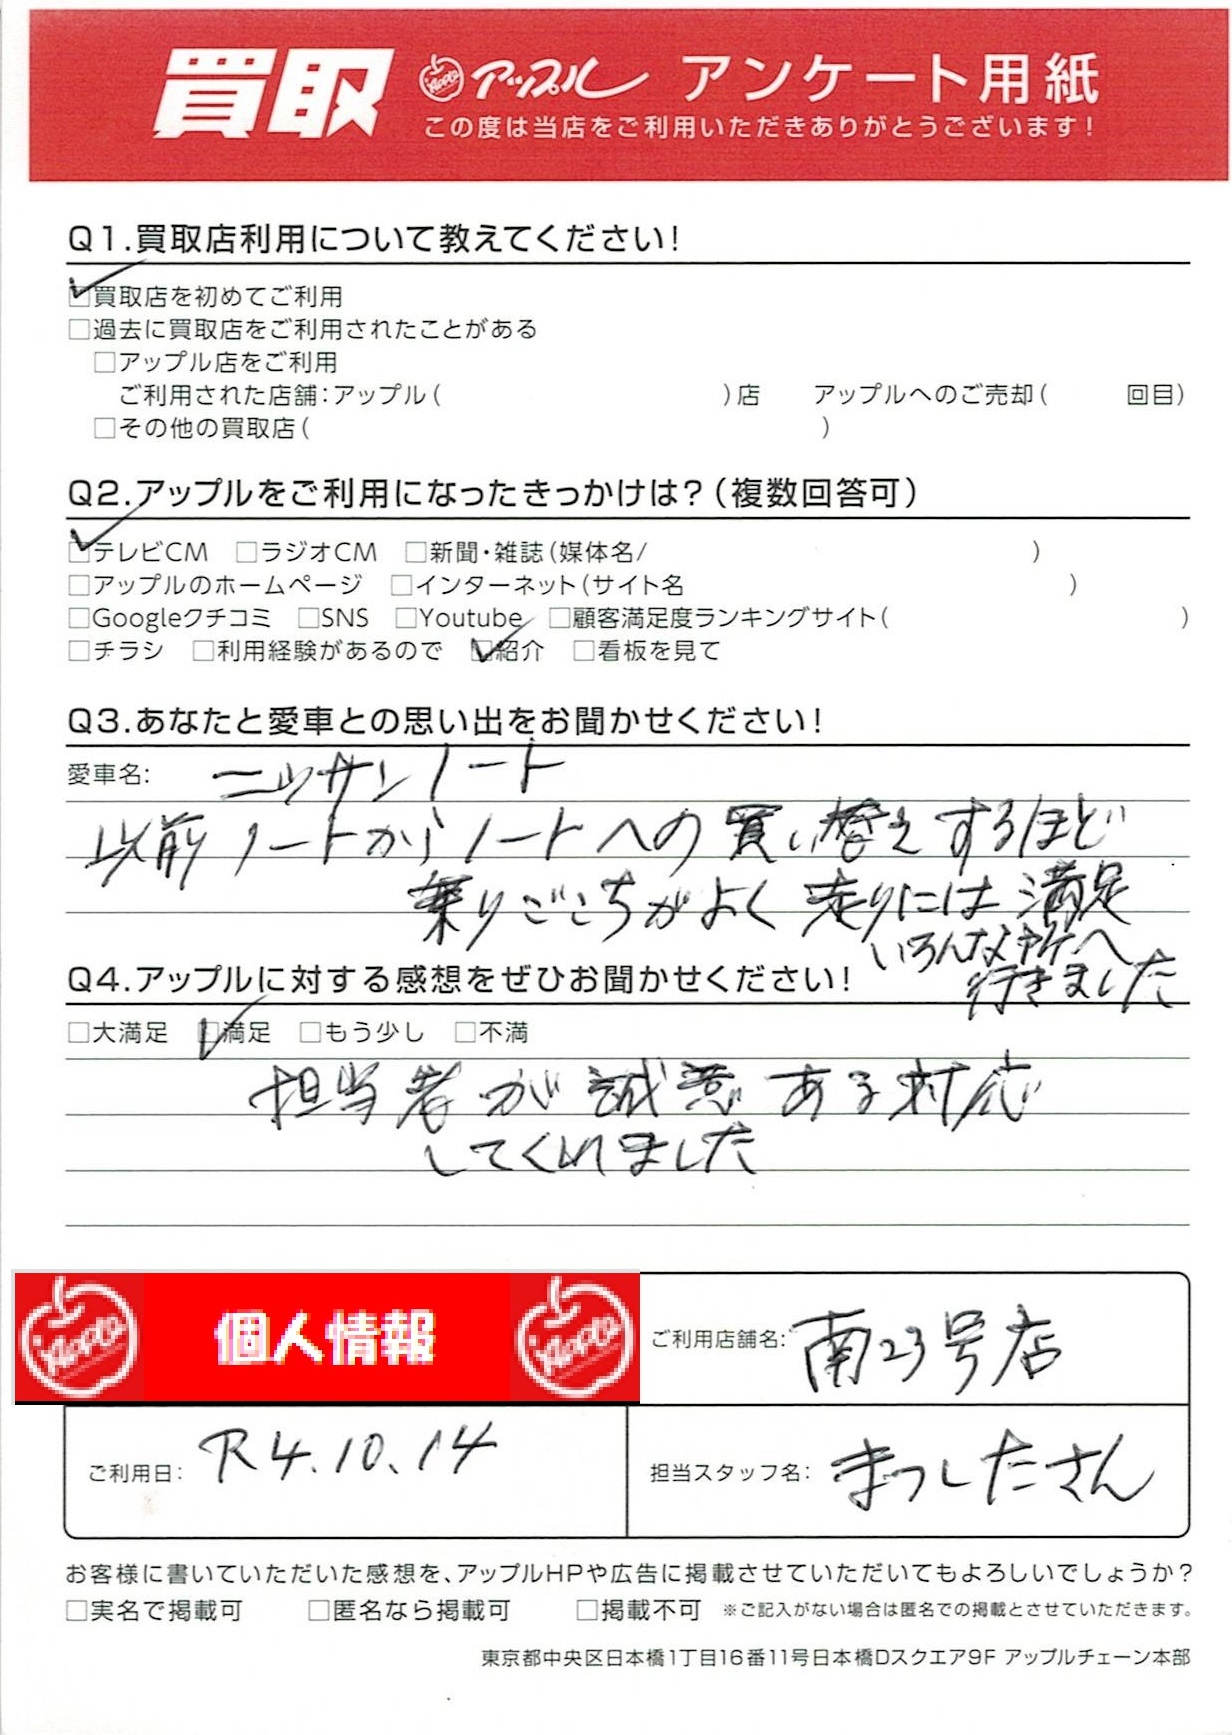 買取 アップル アンケート用紙
この度は当店をご利用いただきありがとうございます!
Q1.買取店利用について教えてください!
☑買取店を初めてご利用
□過去に買取店をご利用されたことがある
□アップル店をご利用
ご利用された店舗:アップル( )店 アップルへのご売却( 回目)
□その他の買取店( )
Q2.アップルをご利用になったきっかけは?(複数回答可)
☑テレビCM □ラジオCM □新聞・雑誌(媒体名/ )
□アップルのホームページ □インターネット(サイト名 )
□Googleクチコミ □SNS □Youtube □顧客満足度ランキングサイト( )
□チラシ □利用経験があるので ☑紹介 □看板を見て
Q3.あなたと愛車との思い出をお聞かせください!
愛車名: ニッサンノート
以前ノートからノートへの買い替えするほど
乗りごこちがよく 走りには満足
いろんな所へ
行きました
Q4.アップルに対する感想をぜひお聞かせください!
□大満足 ☑満足 □もう少し □不満
担当者が誠意ある対応
してくれました
Apple 個人情報 Apple
ご利用店舗名: 南23号店
ご利用日: R4.10.14
担当スタッフ名: まつしたさん
お客様に書いていただいた感想を、アップルHPや広告に掲載させていただいてもよろしいでしょうか?
□実名で掲載可 □匿名なら掲載可 □掲載不可 ※ご記入がない場合は匿名での掲載とさせていただきます。
東京都中央区日本橋1丁目16番11号日本橋Dスクエア9F アップルチェーン本部